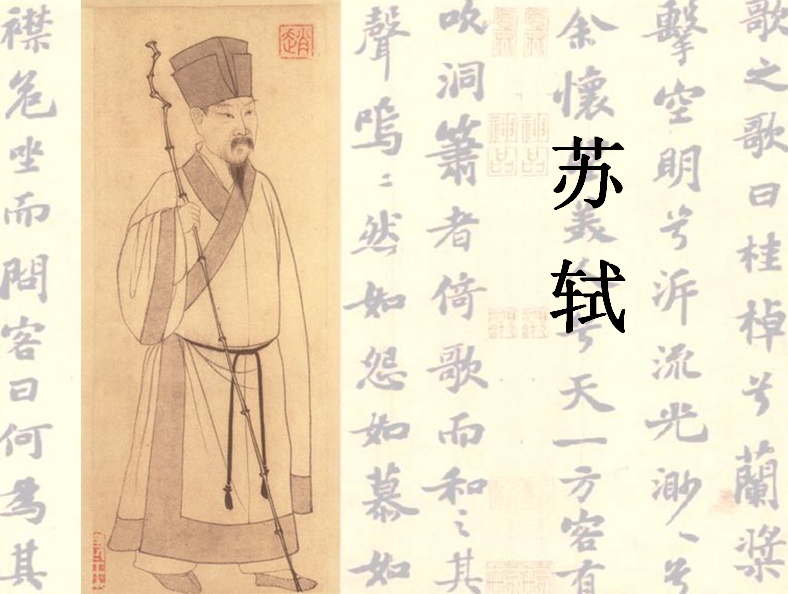 苏轼
歌之歌曰桂棹兮蘭槳
擊空明兮泝流光渺〻兮
余懷美兮天一方客有
吹洞簫者倚歌而和之其
聲嗚〻然如怨如慕如
襟危坐而問客曰何為其